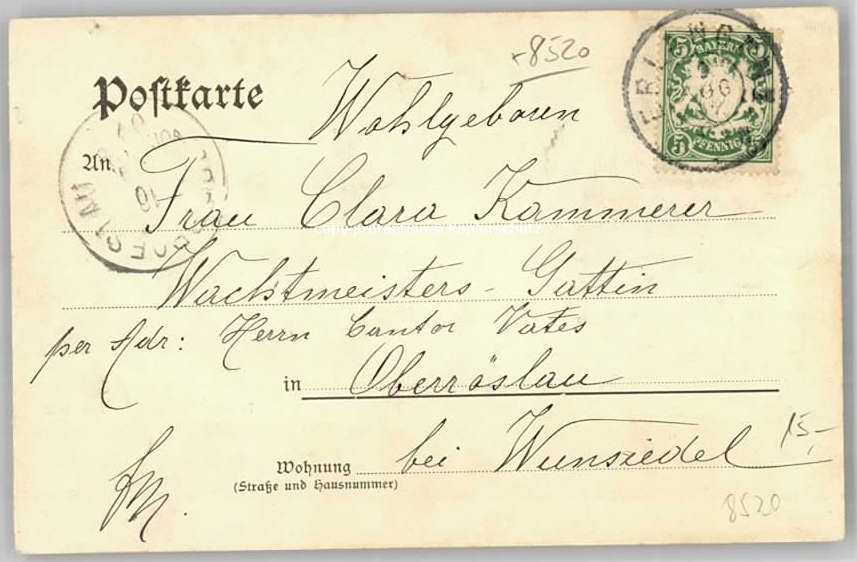 8520
Postkarte
Wohlgeboren
An
Frau Clara Kammerer
copy protection @ kopierschutz
Wachtmeisters-Gattin
per Adr: Herrn Cantor Vates
in Oberröslau
Wohnung bei Wunsiedel
(Straße und Hausnummer)
15,-
8520
5 BAYERN 5
5 PFENNIG 5
ERLANGEN